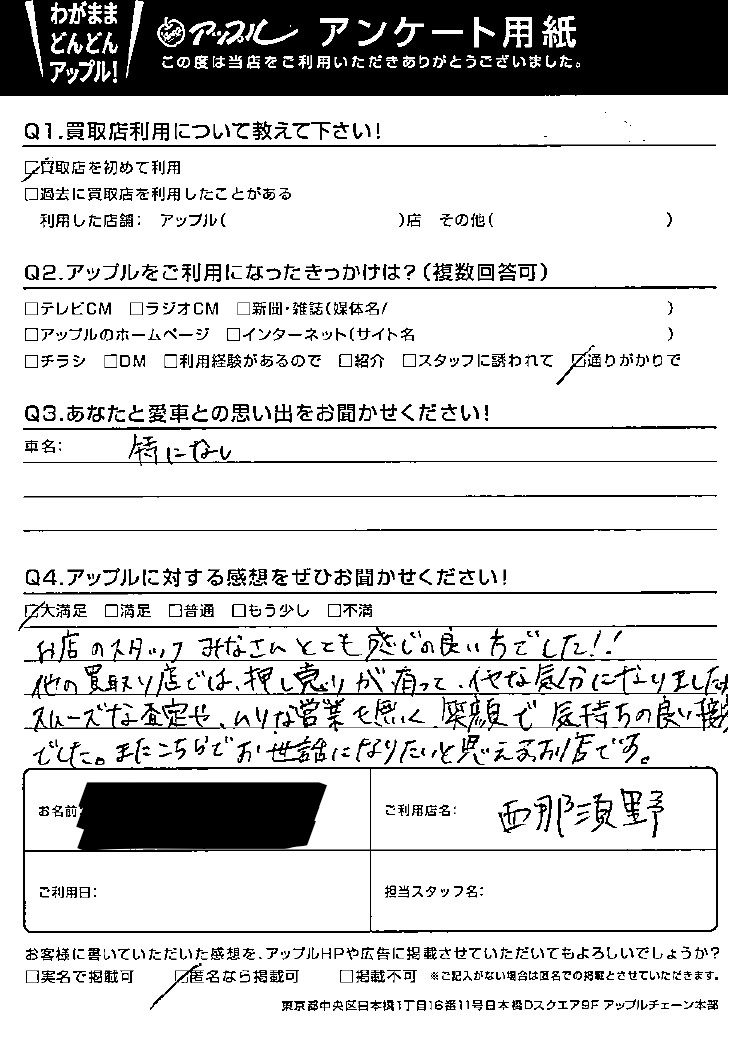 わがまま
どんどん
アップル!
アップル アンケート用紙
この度は当店をご利用いただきありがとうございました。
Q1.買取店利用について教えて下さい!
☑買取店を初めて利用
□過去に買取店を利用したことがある
利用した店舗: アップル( )店 その他( )
Q2.アップルをご利用になったきっかけは?(複数回答可)
□テレビCM □ラジオCM □新聞・雑誌(媒体名/ )
□アップルのホームページ □インターネット(サイト名 )
□チラシ □DM □利用経験があるので □紹介 □スタッフに誘われて ☑通りがかりで
Q3.あなたと愛車との思い出をお聞かせください!
車名: 特になし
Q4.アップルに対する感想をぜひお聞かせください!
☑大満足 □満足 □普通 □もう少し □不満
お店のスタッフみなさんとても感じの良い方でした!!
他の買取り店では、押し売りが有って、イヤな気分になりましたが
スムーズな査定や、ムリな営業も無く、笑顔で気持ちの良い接
でした。またこちらでお世話になりたいと思えるお店です。
お名前
ご利用店名: 西那須野
ご利用日:
担当スタッフ名:
お客様に書いていただいた感想を、アップルHPや広告に掲載させていただいてもよろしいでしょうか?
□実名で掲載可 ☑匿名なら掲載可 □掲載不可 ※ご記入がない場合は匿名での掲載とさせていただきます。
東京都中央区日本橋1丁目16番11号日本橋Dスクエア9F アップルチェーン本部